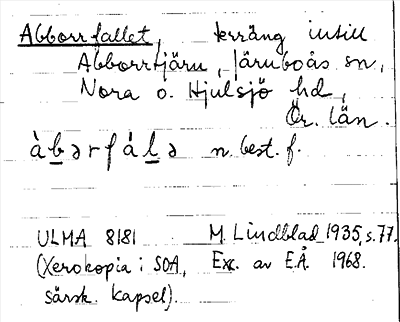 Abborrfallet, terräng intill
Abborrtjärn, Järnboås sn,
Nora o. Hjulsjö hd,
Ör. län.
àb̲ərfál̲ə n. best. f.
ULMA 8181 M. Lindblad 1935, s. 77.
(Xerokopia i SOA, Exc. av E.Å. 1968.
särsk. kapsel).